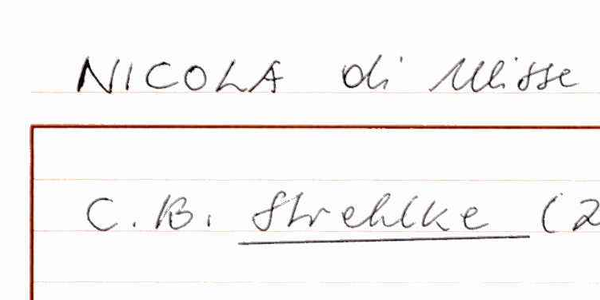 NICOLA di Ulisse
C.B. Strehlke (2